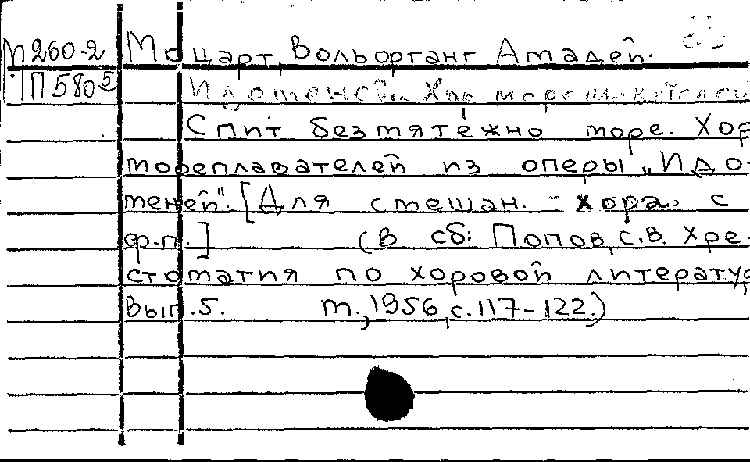 М260-2 Моцарт, Вольфганг Амадей.
П5805 Идоменей. Хор мореплавателей
Спит безмятежно море. Хор
мореплавателей из оперы „Идо-
меней". [Для смешан. хора с
ф.-п.] (В сб: Попов, С.В. Хре-
стоматия по хоровой литературе
Вып. 5. М., 1956, с. 117-122.)